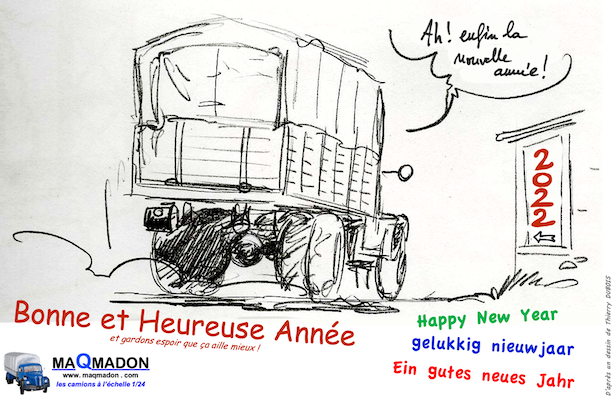 Ah! enfin la
nouvelle
année!
2022
Bonne et Heureuse Année
et gardons espoir que ça aille mieux !
Happy New Year
gelukkig nieuwjaar
Ein gutes neues Jahr
MAQMADON
www.maqmadon.com
les camions à l'échelle 1/24
D'après un dessin de Thierry DUBOIS